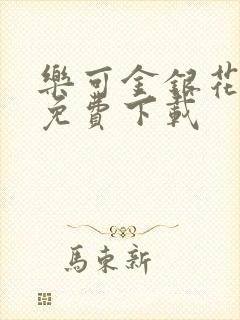 樂可金銀花
免費下載
馬東新